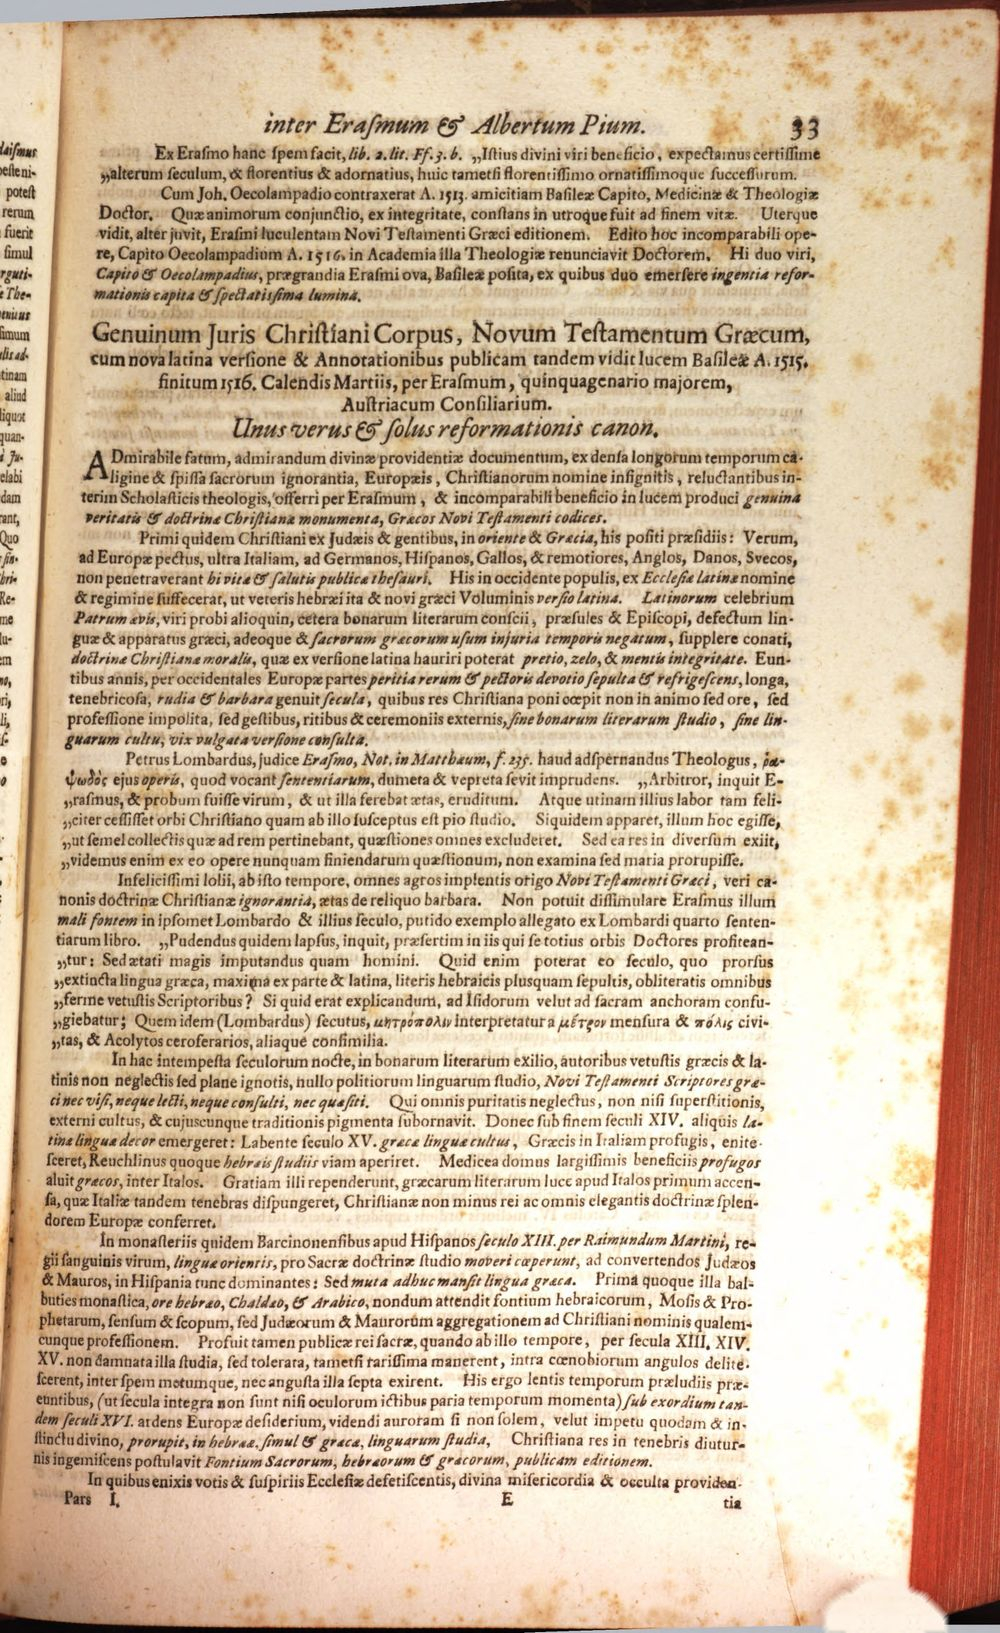 inter Eraſmum & Albertum Pium. 33
Ex Eraſmo hanc ſpem facit, lib. 2. lit. Ff. 3. b. „Iſtius divini viri beneficio, expectamus certiſſime
„alterum ſeculum, & florentius & adornatius, huic tametſi florentiſſimo ornatiſſimoque ſucceſſurum.
Cum Joh. Oecolampadio contraxerat A. 1513. amicitiam Baſileæ Capito, Medicinæ & Theologiæ
Doctor. Quæ animorum conjunctio, ex integritate, conſtans in utroque fuit ad finem vitæ. Uterque
vidit, alter juvit, Eraſmi luculentam Novi Teſtamenti Græci editionem. Edito hoc incomparabili ope-
re, Capito Oecolampadium A. 1516. in Academia illa Theologiæ renunciavit Doctorem. Hi duo viri,
Capito & Oecolampadius, prægrandia Eraſmi ova, Baſileæ poſita, ex quibus duo emerſere ingentia refor-
mationis capita & ſpectatiſſima lumina.
Genuinum Juris Chriſtiani Corpus, Novum Teſtamentum Græcum,
cum nova latina verſione & Annotationibus publicam tandem vidit lucem Baſileæ A. 1515.
finitum 1516. Calendis Martiis, per Eraſmum, quinquagenario majorem,
Auſtriacum Conſiliarium.
Unus verus & ſolus reformationis canon.
ADmirabile fatum, admirandum divinæ providentiæ documentum, ex denſa longorum temporum ca-
ligine & ſpiſſa ſacrorum ignorantia, Europæis, Chriſtianorum nomine inſignitis, reluctantibus in-
terim Scholaſticis theologis, offerri per Eraſmum, & incomparabili beneficio in lucem produci genuina
veritatis & doctrinæ Chriſtianæ monumenta, Græcos Novi Teſtamenti codices.
Primi quidem Chriſtiani ex Judæis & gentibus, in oriente & Græcia, his poſiti præſidiis: Verum,
ad Europæ pectus, ultra Italiam, ad Germanos, Hiſpanos, Gallos, & remotiores, Anglos, Danos, Svecos,
non penetraverant hi vitæ & ſalutis publicæ theſauri. His in occidente populis, ex Eccleſiæ latinæ nomine
& regimine ſuffecerat, ut veteris hebræi ita & novi græci Voluminis verſio latina. Latinorum celebrium
Patrum ævis, viri probi alioquin, cetera bonarum literarum conſcii, præſules & Epiſcopi, defectum lin-
guæ & apparatus græci, adeoque & ſacrorum græcorum uſum injuria temporis negatum, ſupplere conati,
doctrinæ Chriſtianæ moralis, quæ ex verſione latina hauriri poterat pretio, zelo, & mentis integritate. Eun-
tibus annis, per occidentales Europæ partes peritia rerum & pectoris devotio ſepulta & refrigeſcens, longa,
tenebricoſa, rudia & barbara genuit ſecula, quibus res Chriſtiana poni cœpit non in animo ſed ore, ſed
profeſſione impolita, ſed geſtibus, ritibus & ceremoniis externis, ſine bonarum literarum ſtudio, ſine lin-
guarum cultu, vix vulgata verſione conſulta.
Petrus Lombardus, judice Eraſmo, Not. in Matthæum, f. 235. haud adſpernandus Theologus, ῥα-
ψωδὸς ejus operis, quod vocant ſententiarum, dumeta & vepreta ſevit imprudens. „Arbitror, inquit E-
„raſmus, & probum fuiſſe virum, & ut illa ferebat ætas, eruditum. Atque utinam illius labor tam feli-
„citer ceſſiſſet orbi Chriſtiano quam ab illo ſuſceptus eſt pio ſtudio. Siquidem apparet, illum hoc egiſſe,
„ut ſemel collectis quæ ad rem pertinebant, quæſtiones omnes excluderet. Sed ea res in diverſum exiit,
„videmus enim ex eo opere nunquam finiendarum quæſtionum, non examina ſed maria prorupiſſe.
Infeliciſſimi lolii, ab iſto tempore, omnes agros implentis origo Novi Teſtamenti Græci, veri ca-
nonis doctrinæ Chriſtianæ ignorantia, ætas de reliquo barbara. Non potuit diſſimulare Eraſmus illum
mali fontem in ipſomet Lombardo & illius ſeculo, putido exemplo allegato ex Lombardi quarto ſenten-
tiarum libro. „Pudendus quidem lapſus, inquit, præſertim in iis qui ſe totius orbis Doctores profitean-
„tur: Sed ætati magis imputandus quam homini. Quid enim poterat eo ſeculo, quo prorſus
„extincta lingua græca, maxima ex parte & latina, literis hebraicis pluſquam ſepultis, obliteratis omnibus
„ferme vetuſtis Scriptoribus? Si quid erat explicandum, ad Iſidorum velut ad ſacram anchoram confu-
„giebatur; Quem idem (Lombardus) ſecutus, μητρόπολιν interpretatur a μέτρον menſura & πόλις civi-
„tas, & Acolytos ceroferarios, aliaque conſimilia.
In hac intempeſta ſeculorum nocte, in bonarum literarum exilio, autoribus vetuſtis græcis & la-
tinis non neglectis ſed plane ignotis, nullo politiorum linguarum ſtudio, Novi Teſtamenti Scriptores græ-
ci nec viſi, neque lecti, neque conſulti, nec quæſiti. Qui omnis puritatis neglectus, non niſi ſuperſtitionis,
externi cultus, & cujuscunque traditionis pigmenta ſubornavit. Donec ſub finem ſeculi XIV. aliquis la-
tinæ linguæ decor emergeret: Labente ſeculo XV. græcæ linguæ cultus, Græcis in Italiam profugis, enite-
ſceret, Reuchlinus quoque hebræis ſtudiis viam aperiret. Medicea domus largiſſimis beneficiis profugos
aluit græcos, inter Italos. Gratiam illi rependerunt, græcarum literarum luce apud Italos primum accen-
ſa, quæ Italiæ tandem tenebras diſpungeret, Chriſtianæ non minus rei ac omnis elegantis doctrinæ ſplen-
dorem Europæ conferret.
In monaſteriis quidem Barcinonenſibus apud Hiſpanos ſeculo XIII. per Raimundum Martini, re-
gii ſanguinis virum, linguæ orientis, pro Sacræ doctrinæ ſtudio moveri cœperunt, ad convertendos Judæos
& Mauros, in Hiſpania tunc dominantes: Sed muta adhuc manſit lingua græca. Prima quoque illa bal-
buties monaſtica, ore hebræo, Chaldæo, & Arabico, nondum attendit fontium hebraicorum, Moſis & Pro-
phetarum, ſenſum & ſcopum, ſed Judæorum & Maurorum aggregationem ad Chriſtiani nominis qualem-
cunque profeſſionem. Profuit tamen publicæ rei ſacræ, quando ab illo tempore, per ſecula XIII. XIV.
XV. non damnata illa ſtudia, ſed tolerata, tametſi rariſſima manerent, intra cœnobiorum angulos delite-
ſcerent, inter ſpem metumque, nec anguſta illa ſepta exirent. His ergo lentis temporum præludiis præ-
euntibus, (ut ſecula integra non ſunt niſi oculorum ictibus paria temporum momenta) ſub exordium tan-
dem ſeculi XVI. ardens Europæ deſiderium, videndi auroram ſi non ſolem, velut impetu quodam & in-
ſtinctu divino, prorupit, in hebrææ, ſimul & græcæ, linguarum ſtudia, Chriſtiana res in tenebris diutur-
nis ingemiſcens poſtulavit Fontium Sacrorum, hebræorum & græcorum, publicam editionem.
In quibus enixis votis & ſuſpiriis Eccleſiæ defetiſcentis, divina miſericordia & occulta providen-
Pars I. E tia